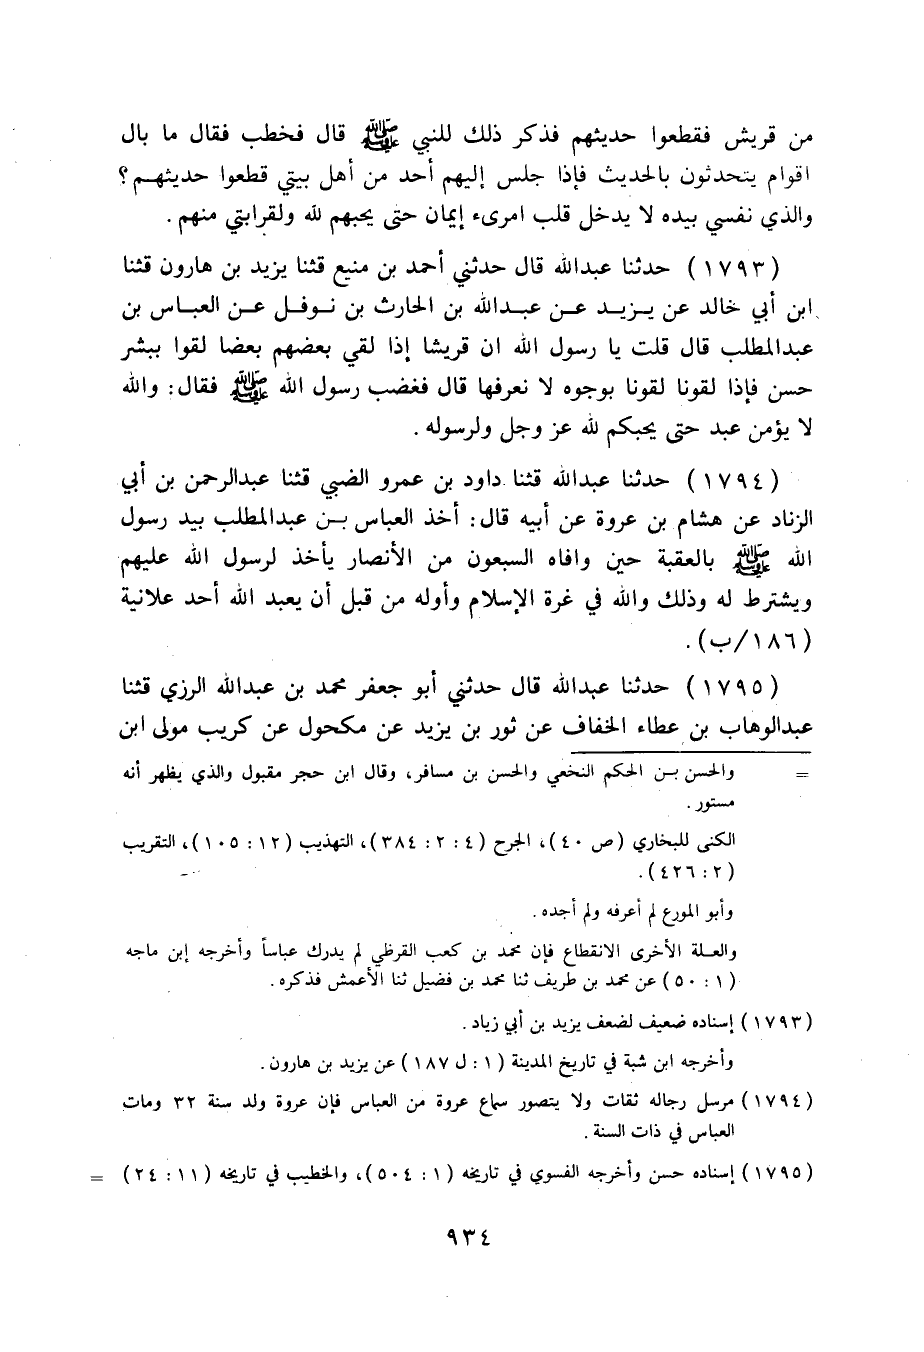 من قريش فقطعوا حديثهم فذكر ذلك للنبي ﷺ قال فخطب فقال ما بال
اقوام يتحدثون بالحديث فإذا جلس إليهم أحد من أهل بيتي قطعوا حديثهم؟
والذي نفسي بيده لا يدخل قلب امرىء إيمان حتى يحبهم لله ولقرابتي منهم.
(١٧٩٣) حدثنا عبدالله قال حدثني أحمد بن منيع قثنا يزيد بن هارون قثنا
ابن أبي خالد عن يزيد عن عبدالله بن الحارث بن نوفل عن العباس بن
عبدالمطلب قال قلت يا رسول الله ان قريشا إذا لقي بعضهم بعضا لقوا ببشر
حسن فإذا لقونا لقونا بوجوه لا نعرفها قال فغضب رسول الله ﷺ فقال: والله
لا يؤمن عبد حتى يحبكم لله عز وجل ولرسوله.
(١٧٩٤) حدثنا عبدالله قثنا داود بن عمرو الضبي قثنا عبدالرحمن بن أبي
الزناد عن هشام بن عروة عن أبيه قال: أخذ العباس بن عبدالمطلب بيد رسول
الله ﷺ بالعقبة حين وافاه السبعون من الأنصار يأخذ لرسول الله عليهم
ويشترط له وذلك والله في غرة الإسلام وأوله من قبل أن يعبد الله أحد علانية
(١٨٦/ب).
(١٧٩٥) حدثنا عبدالله قال حدثني أبو جعفر محمد بن عبدالله الرزي قثنا
عبدالوهاب بن عطاء الخفاف عن ثور بن يزيد عن مكحول عن كريب مولى ابن
= والحسن بن الحكم النخعي والحسن بن مسافر، وقال ابن حجر مقبول والذي يظهر أنه
مستور.
الكنى للبخاري (ص ٤٠)، الجرح (٤: ٢: ٣٨٤)، التهذيب (١٢: ١٠٥)، التقريب
(٢: ٤٢٦).
وأبو المورع لم أعرفه ولم أجده.
والعلة الأخرى الانقطاع فإن محمد بن كعب القرظي لم يدرك عباساً وأخرجه إبن ماجه
(١: ٥٠) عن محمد بن طريف ثنا محمد بن فضيل ثنا الأعمش فذكره.
(١٧٩٣) إسناده ضعيف لضعف يزيد بن أبي زياد.
وأخرجه ابن شبة في تاريخ المدينة (١: ل ١٨٧) عن يزيد بن هارون.
(١٧٩٤) مرسل رجاله ثقات ولا يتصور سماع عروة من العباس فإن عروة ولد سنة ٣٢ ومات
العباس في ذات السنة.
(١٧٩٥) إسناده حسن وأخرجه الفسوي في تاريخه (١: ٥٠٤)، والخطيب في تاريخه (١١: ٢٤) =
٩٣٤